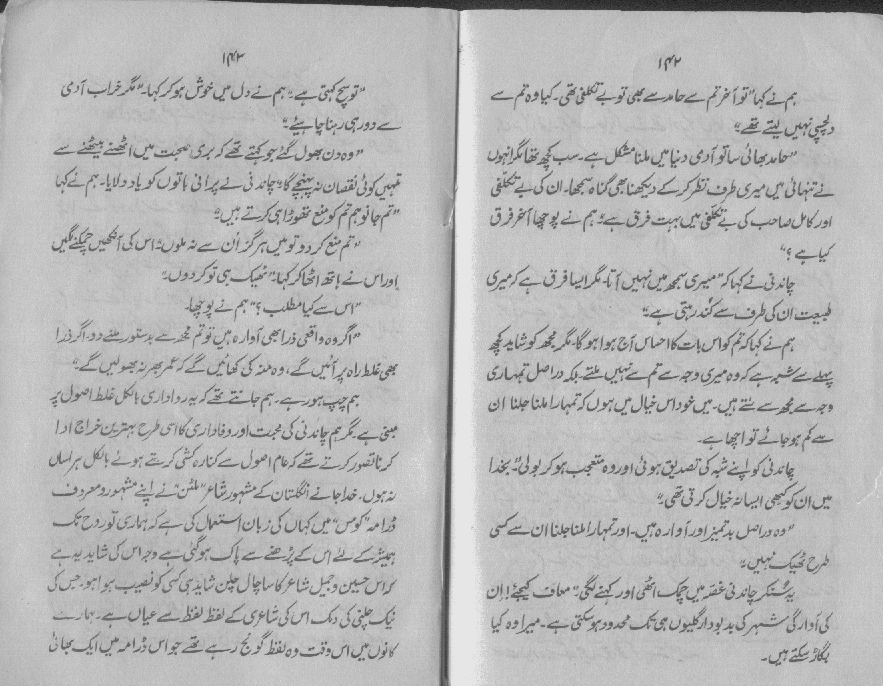 ۱۴۲
ہم نے کہا "تو آخر تم سے حامد سے بھی تو بے تکلفی تھی۔ کیا وہ تم سے
دلچسپی نہیں لیتے تھے"
"حامد بھائی سا تو آدمی دنیا میں ملنا مشکل ہے۔ سب کچھ تھا مگر انہوں
نے تنہائی میں میری طرف نظر کر کے دیکھنا بھی گناہ سمجھا۔ ان کی بے تکلفی
اور کامل صاحب کی بے تکلفی میں بہت فرق ہے" ہم نے پوچھا آخر فرق
کیا ہے؟"
چاندنی نے کہا کہ "میری سمجھ میں نہیں آتا۔ مگر ایسا فرق ہے کہ میری
طبیعت ان کی طرف سے مُکدر رہتی ہے"
ہم نے کہا کہ تم کو اس بات کا احساس آج ہوا ہوگا۔ مگر مجھ کو شاید کچھ
پہلے سے شبہ ہے کہ وہ میری وجہ سے تم سے نہیں ملتے۔ بلکہ دراصل تمہاری
وجہ سے مجھ سے ملتے ہیں۔ میں خود اس خیال میں ہوں کہ تمہارا ملنا جلنا ان
سے کم ہو جائے تو اچھا ہے۔
چاندنی کو اپنے شبہ کی تصدیق ہوئی اور وہ متعجب ہو کر بولی" بخدا
میں ان کو کبھی ایسا نہ خیال کرتی تھی"
"وہ دراصل بدتمیز اور آوارہ ہیں۔ اور تمہارا ملنا جلنا ان سے کسی
طرح ٹھیک نہیں"
یہ سُنکر چاندنی غصہ میں چمک اٹھی اور کہنے لگی" معاف کیجئے! اِن
کی آوارگی شہر کی بدبودار گلیوں ہی تک محدود ہوسکتی ہے۔ میرا وہ کیا
بگاڑ سکتے ہیں۔
۱۴۳
"تو سچ کہتی ہے" ہم نے دل میں خوش ہو کر کہا۔ "مگر خراب آدمی
سے دور ہی رہنا چاہیئے"
"وہ دن بھول گئے جو کہتے تھے کہ بری صحبت میں اٹھنے بیٹھنے سے
تمہیں کوئی نقصان نہ پہنچے گا" چاندنی نے پرانی باتوں کو یاد دلایا۔ ہم نے کہا
"تم جانو ہم تم کو منع تھوڑا ہی کرتے ہیں"
"تم منع کر دو تو میں ہرگز اُن سے نہ ملوں" اس کی آنکھیں چمکنے لگیں
اور اس نے ہاتھ اٹھا کر کہا" ٹھیک ہی تو کر دوں"
"اس سے کیا مطلب؟" ہم نے پوچھا۔
"اگر وہ واقعی ذرا بھی آوارہ ہیں تو تم مجھ سے بدستور ملنے دو۔ اگر ذرا
بھی غلط راہ پر آئیں گے، وہ منہ کی کھائیں گے کہ عمر بھر نہ بھولیں گے"
ہم چپ ہو رہے۔ ہم جانتے تھے کہ یہ رواداری بالکل غلط اصول پر
مبنی ہے۔ مگر ہم چاندنی کی محبت اور وفاداری کا اسی طرح بہترین خراج ادا
کرنا تصور کرتے تھے کہ عام اصول سے کنارہ کشی کرتے ہوئے بالکل ہراساں
نہ ہوں۔ خدا جانے انگلستان کے مشہور شاعر "ملٹن" نے اپنے مشہور و معروف
ڈرامہ "کومس" میں کہاں کی زبان استعمال کی ہے کہ ہماری تو روح تک
ہمیشہ کے لئے اس کے پڑھنے سے پاک ہوگئی ہے وجہ اس کی شاید یہ ہے
کہ اس حسین و جمیل شاعر کا سا چال چلن شاید ہی کسی کو نصیب ہوا ہو۔ جس کی
نیک چلنی کی دمک اس کی شاعری کے لفظ لفظ سے عیاں ہے۔ ہمارے
کانوں میں اس وقت وہ لفظ گونج رہے تھے جو اس ڈرامہ میں ایک بھائی